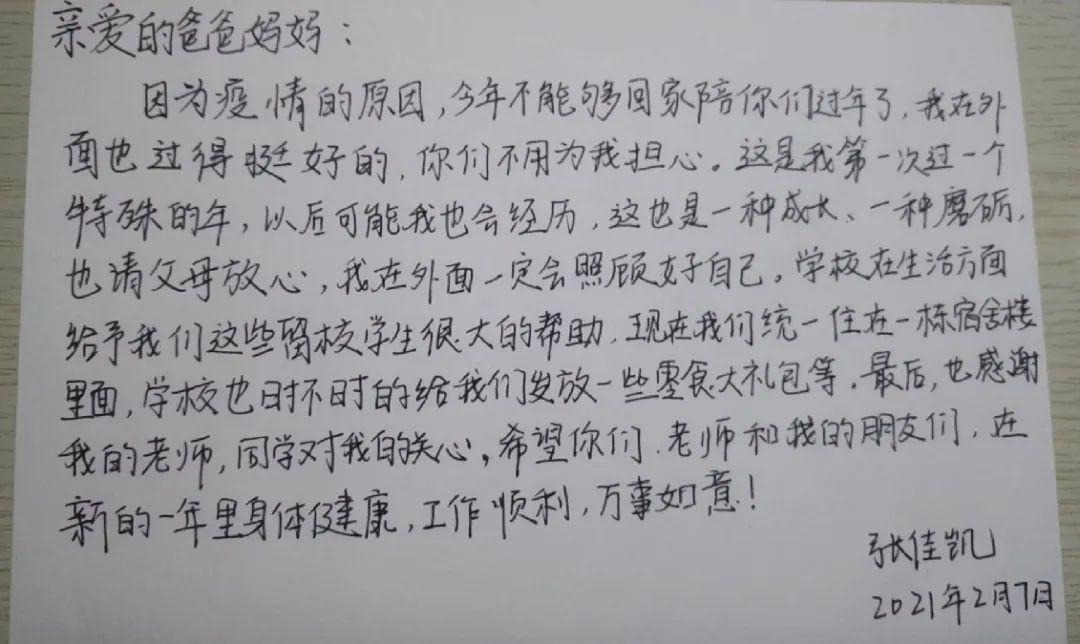 亲爱的爸爸妈妈：
因为疫情的原因，今年不能够回家陪你们过年了，我在外
面也过得挺好的，你们不用为我担心。这是我第一次过一个
特殊的年，以后可能我也会经历，这也是一种成长、一种磨砺，
也请父母放心，我在外面一定会照顾好自己。学校在生活方面
给予我们这些留校学生很大的帮助，现在我们统一住在一栋宿舍楼
里面，学校也时不时的给我们发放一些零食大礼包等。最后，也感谢
我的老师，同学对我的关心。希望你们、老师和我的朋友们，在
新的一年里身体健康，工作顺利，万事如意！
张佳凯
2021年2月7日